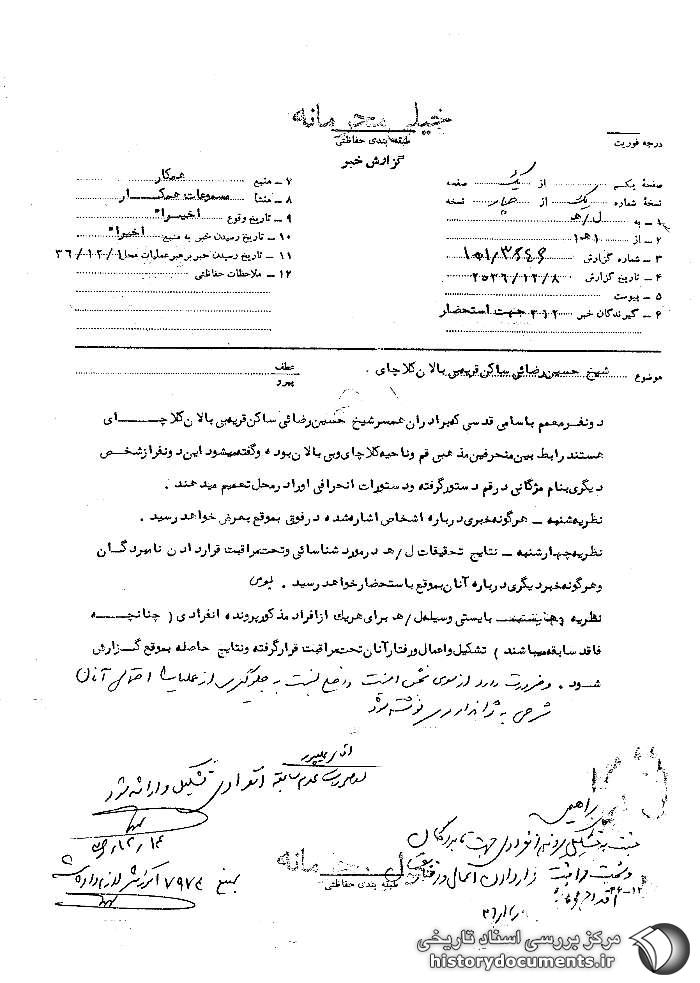 خیلی محرمانه
طبقه بندی حفاظتی
گزارش خبر
درجه فوریت
صفحهٔ یکم از یک صفحه
نسخهٔ شماره یک از چهار نسخه
۱ – به ل/هـ
۲ – از ۱هـ۱
۳ – شماره گزارش ۱۵۱/۳۶۴۶
۴ – تاریخ گزارش ۲۵۳۶/۱۲/۸
۵ – پیوست
۶ – گیرندگان خبر ۳۱۲ جهت استحضار
۷ – منبع همکار
۸ – منشأ مسموعات همکار
۹ – تاریخ وقوع اخیرا"
۱۰ – تاریخ رسیدن خبر به منبع اخیرا"
۱۱ – تاریخ رسیدن خبر برهبر عملیات محل ۳۶/۱۲/۱
۱۲ – ملاحظات حفاظتی
موضوع شیخ حسین رضائی ساکن قریه بی بالان کلاچای .
عطف
پیرو
دو نفر معمم باسامی قدسی که برادران همسر شیخ حسین رضائی ساکن قریه بی بالان کلاچای
هستند رابط بین منحرفین مذهبی قم و ناحیه کلاچای و بی بالان بوده و گفته میشود این دو نفر از شخص
دیگری بنام مژگانی در قم دستور گرفته و دستورات انحرافی او را در محل تعمیم میدهند .
نظریه شنبه – هر گونه خبری درباره اشخاص اشاره شده در فوق بموقع بعرض خواهد رسید .
نظریه چهارشنبه – نتایج تحقیقات ل/هـ در مورد شناسائی و تحت مراقبت قرار دادن نامبردگان
و هر گونه خبر دیگری درباره آنان بموقع باستحضار خواهد رسید .
نظریه بایستی وسیله ل/هـ برای هر یک از افراد مذکور پرونده انفرادی ( چنانچه
فاقد سابقه میباشند ) تشکیل و اعمال و رفتار آنان تحت مراقبت قرار گرفته و نتایج حاصله بموقع گزارش
شود . و ضرورت دارد از سوی بخش امنیت داخلی نسبت به جلوگیری از عملیات احتمالی آنان
شرحی به ژاندارمری نوشته شود
آقای علیپور
در صورت عدم سابقه انفرادی تشکیل و ارائه شود
۱۴/۱۲/۳۶
راهین
نسبت به تشکیل پرونده انفرادی جهت نامبردگان
و تحت مراقبت قرار دادن اعمال و رفتار
اقدام
خیلی محرمانه
طبقه بندی حفاظتی
بمنبع ۷۹۷۴ آموزش لازم داده شد
مرکز بررسی اسناد تاریخی
historydocuments.ir